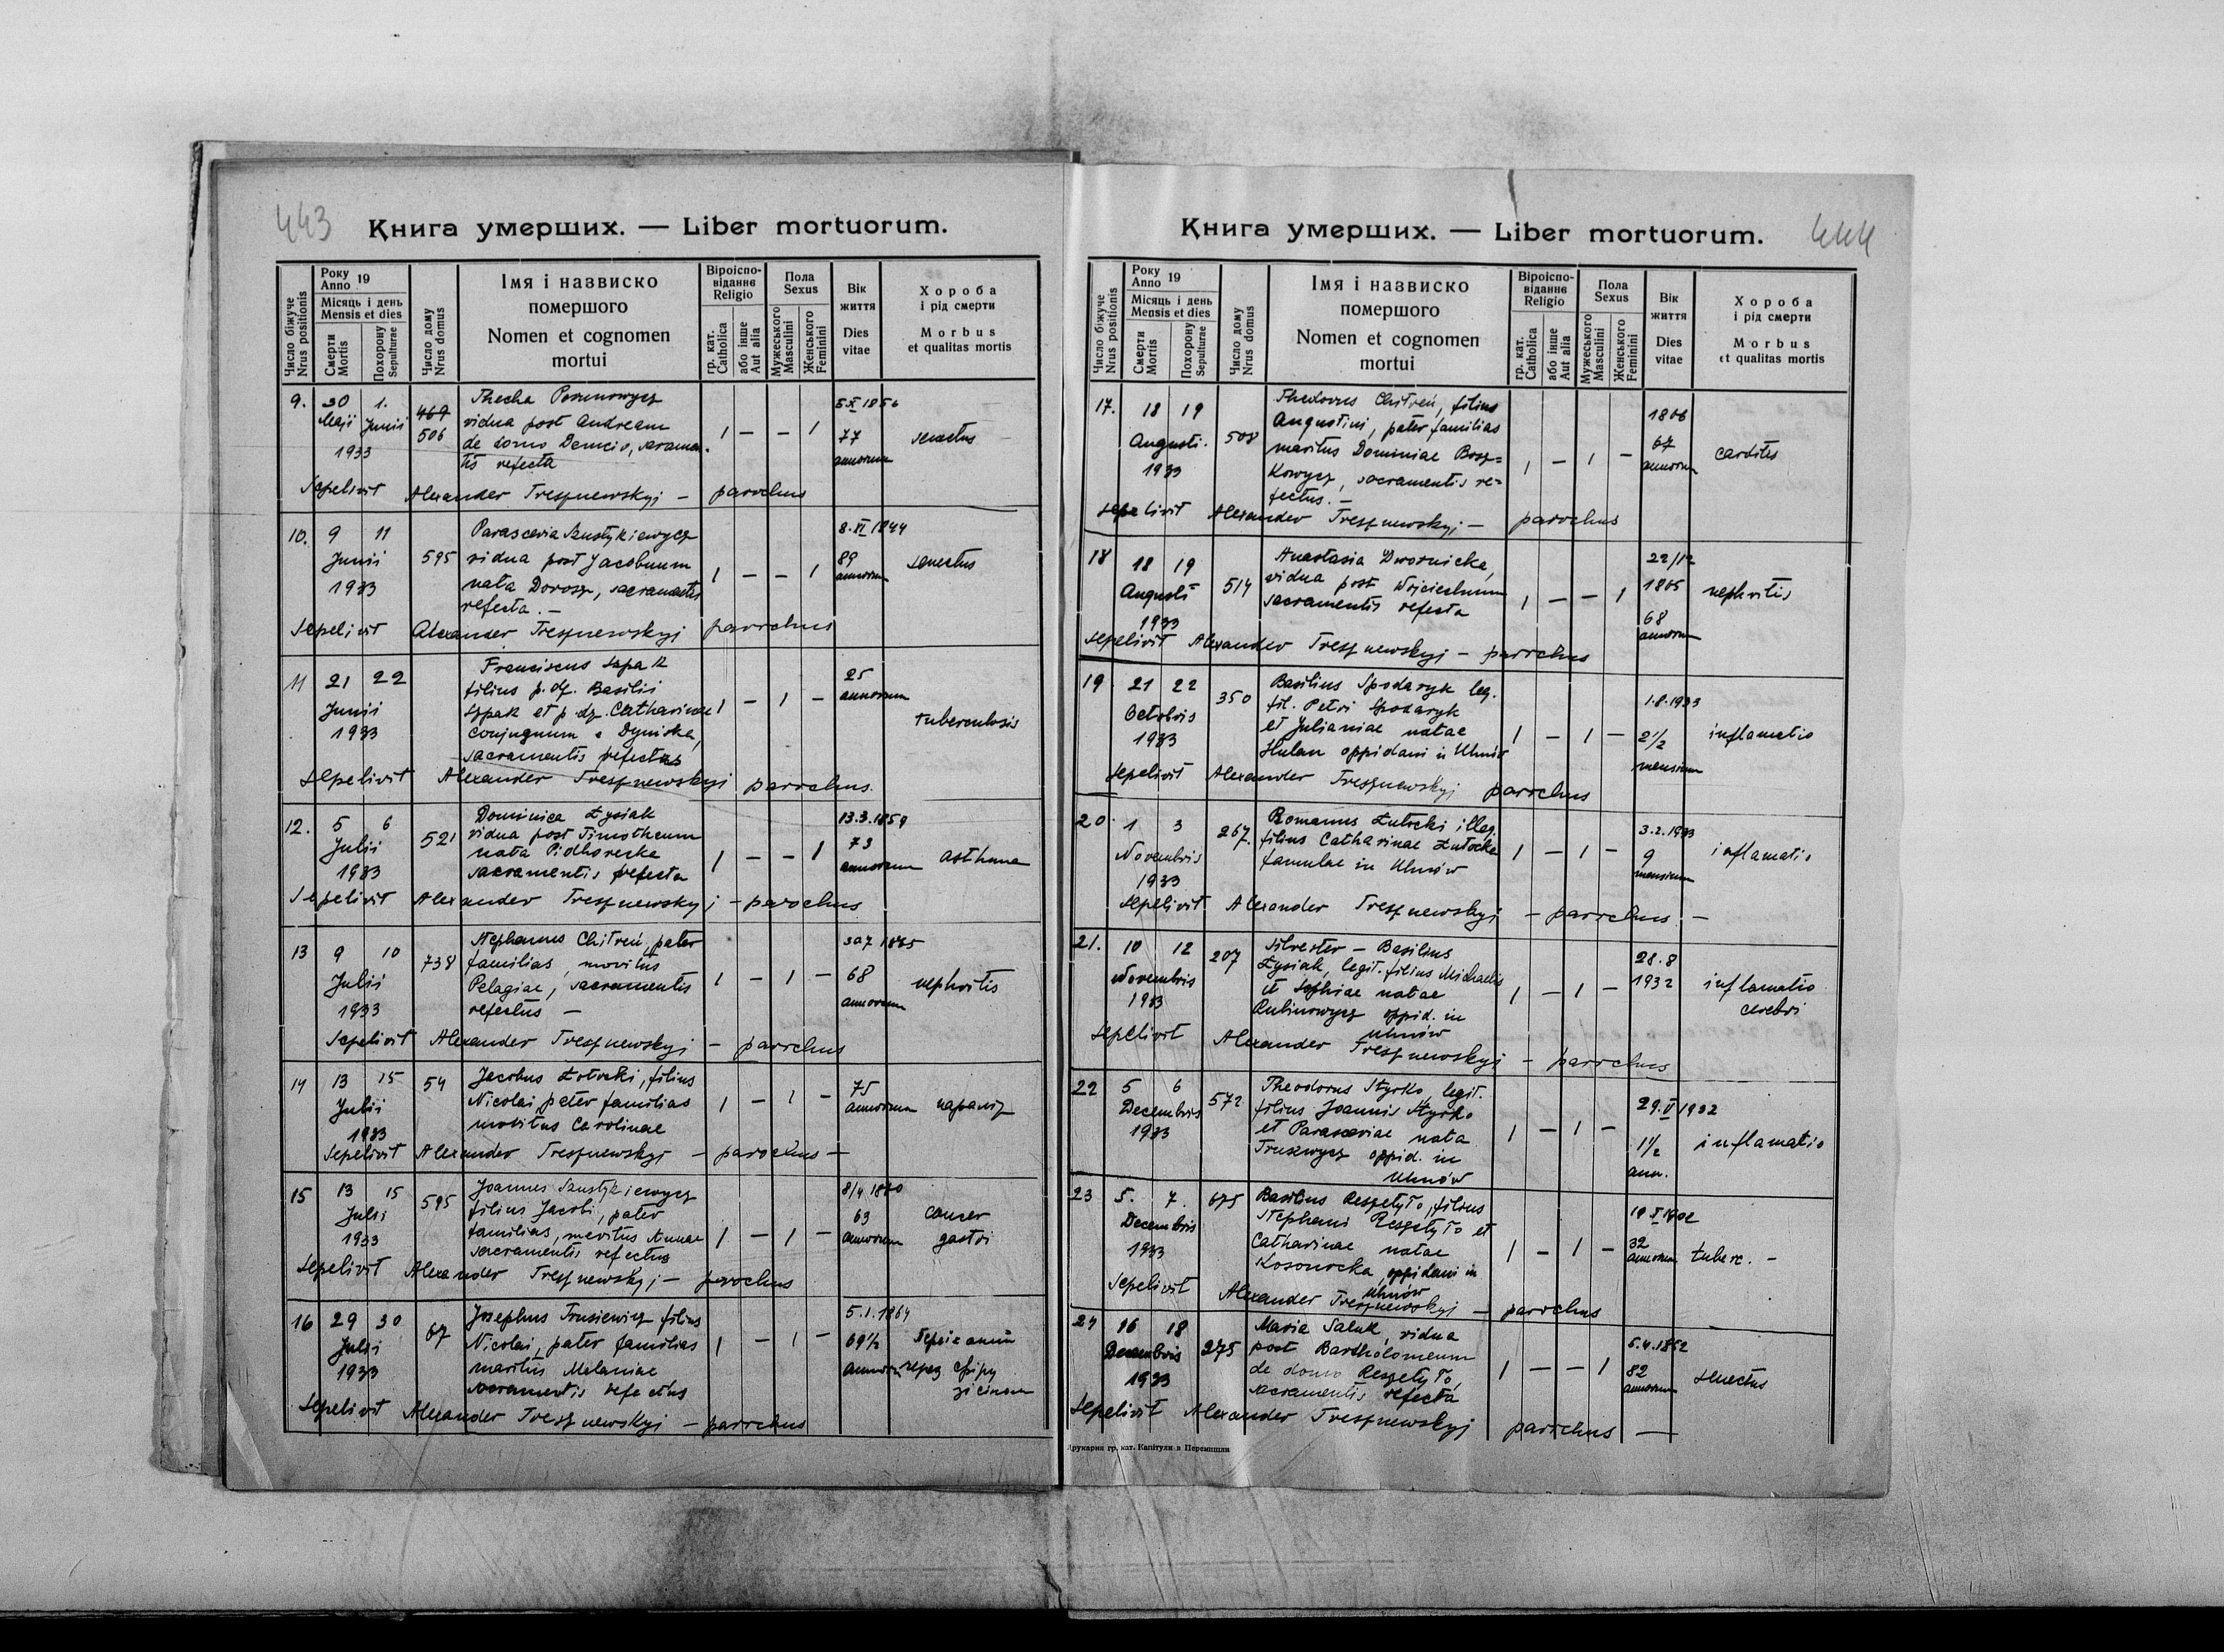 443
Книга умерших. — Liber mortuorum.
Число біжуче
Nrus positionis
Року
Anno 19
Місяць і день
Mensis et dies
Смерти
Mortis
Похорону
Sepulturae
Число дому
Nrus domus
Імя і назвиско
помершого
Nomen et cognomen
mortui
Віроіспо-
віданнє
Religio
гр. кат.
Catholica
або інше
Aut alia
Пола
Sexus
Мужеського
Masculini
Женського
Feminini
Вік
життя
Dies
vitae
Хороба
і рід смерти
Morbus
et qualitas mortis
9. 30 1. Thecla
Maji Junii 469 vidua post Andream 5 X 1856
506 de domo 1 — — 1 77 senectus
1933 tis refecta annorum
Sepelivit Alexander Tresznewskyj — parochus
10. 9 11 Parascevia Szustykiewycz 8.XI 1844
Junii 595 vidua post Jacobum 1 — — 1 89 senectus
1933 nata Dorosz, sacramentis annorum
refecta. —
Sepelivit Alexander Tresznewskyj parochus
11 21 22 Franciscus Szpak 25
Junii filius p. df. Basilii 1 — 1 — annorum
1933 Szpak et p. df. Catharinae tuberculosis
conjugum
sacramentis refectus
Sepelivit Alexander Tresznewskyj parochus.
12. 5 6 Dominica Łysiak 13.3.1859
Julii 521 vidua post Timotheum 73
1933 nata Pidhorecka 1 — — 1 annorum asthma
sacramentis refecta
Sepelivit Alexander Tresznewskyj — parochus
13 9 10 Stephanus Chitreń, pater
Julii 738 familias, maritus 68
1933 Pelagiae, sacramentis 1 — 1 — annorum nephritis
refectus —
Sepelivit Alexander Tresznewskyj — parochus
14 13 15 54 Jacobus Łotocki, filius 75
Julii Nicolai, pater familias 1 — 1 — annorum параліз
1933 maritus Carolinae
Sepelivit Alexander Tresznewskyj — parochus —
15 13 15 595 Joannes Szustykiewycz 8/4 1870
Julii filius Jacobi, pater 63 cancer
1933 familias, maritus Annae 1 — 1 — annorum gastri
sacramentis refectus
Sepelivit Alexander Tresznewskyj — parochus
16 29 30 67 Josephus Trusiewicz filius 5.I.1864
Julii Nicolai, pater familias 1 — 1 — 69½
1933 maritus Melaniae
sacramentis refectus
Sepelivit Alexander Tresznewskyj — parochus
444
Книга умерших. — Liber mortuorum.
Число біжуче
Nrus positionis
Року
Anno 19
Місяць і день
Mensis et dies
Смерти
Mortis
Похорону
Sepulturae
Число дому
Nrus domus
Імя і назвиско
помершого
Nomen et cognomen
mortui
Віроіспо-
віданнє
Religio
гр. кат.
Catholica
або інше
Aut alia
Пола
Sexus
Мужеського
Masculini
Женського
Feminini
Вік
життя
Dies
vitae
Хороба
і рід смерти
Morbus
et qualitas mortis
17. 18 19 Theodorus Chitreń, filius 1866
Augusti. 508 Augustini, pater familias 67
1933 maritus Dominiae Bosz= 1 — 1 — annorum carditis
kowycz, sacramentis re=
fectus. —
sepelivit Alexander Tresznewskyj — parochus
18 18 19 Anastasia Dwornicka, 22/12
Augusti 514 vidua post Wojciechum 1865 nephritis
1933 sacramentis refecta 1 — — 1 68
annorum
sepelivit Alexander Tresznewskyj — parochus
19 21 22 350 Basilius Spodaryk leg. 1.8.1933
Octobris fil. Petri Spodaryk
1933 et Julianiae natae 1 — 1 — 2½ inflamatio
Hulan oppidani in Uhnów mensium
sepelivit Alexander Tresznewskyj parochus
20. 1 3 267. Romanus Łutocki illeg. 3.2.1933
Novembris filius Catharinae Łutocka 1 — 1 — 9 inflamatio
1933 famulae in Uhnów mensium
sepelivit Alexander Tresznewskyj — parochus —
21. 10 12 207 Silvester — Basilius 28.8
Novembris Łysiak, legit. filius Michaelis 1932 inflamatio
1933 et Sophiae natae 1 — 1 — cerebri
Rubinowycz oppid. in
Uhnów
Sepelivit Alexander Tresznewskyj — parochus
22 5 6 572 Theodorus Styrko, legit. 29.V 1932
Decembris filius Joannis Styrko
1933 et Parasceviae nata 1 — 1 — 1½ inflamatio
oppid. in ann.
Uhnów
23 5. 7. 675 Basilius Reszetyło, filius
Decembris Stephani Reszetyło et 32
1933 Catharinae natae 1 — 1 — annorum tuberc. —
oppidani in
Uhnów
Sepelivit Alexander Tresznewskyj — parochus
24 16 18 Maria Saluk, vidua 5.4.1852
Decembris 275 post Bartholomeum 1 — — 1 82
1933 de domo Reszetyło, annorum senectus
sacramentis refecta
Sepelivit Alexander Tresznewskyj parochus —
Друкарня гр. кат. Капітули в Перемишли